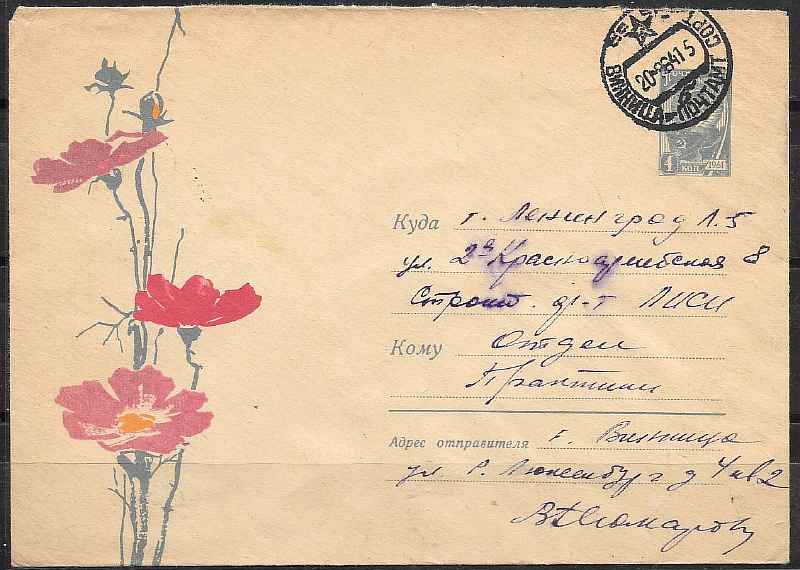 ВИННИЦА ПОЧТАМТ СОРТ
ПОЧТА
4 КОП 1961
Куда г. Ленинград Л.5
ул. 2ая Красноармейская 8
Строит. ф-т ЛИСИ
Кому Отдел
Практики
Адрес отправителя г. Винница
ул Р. Люксембург д 4 кв 2